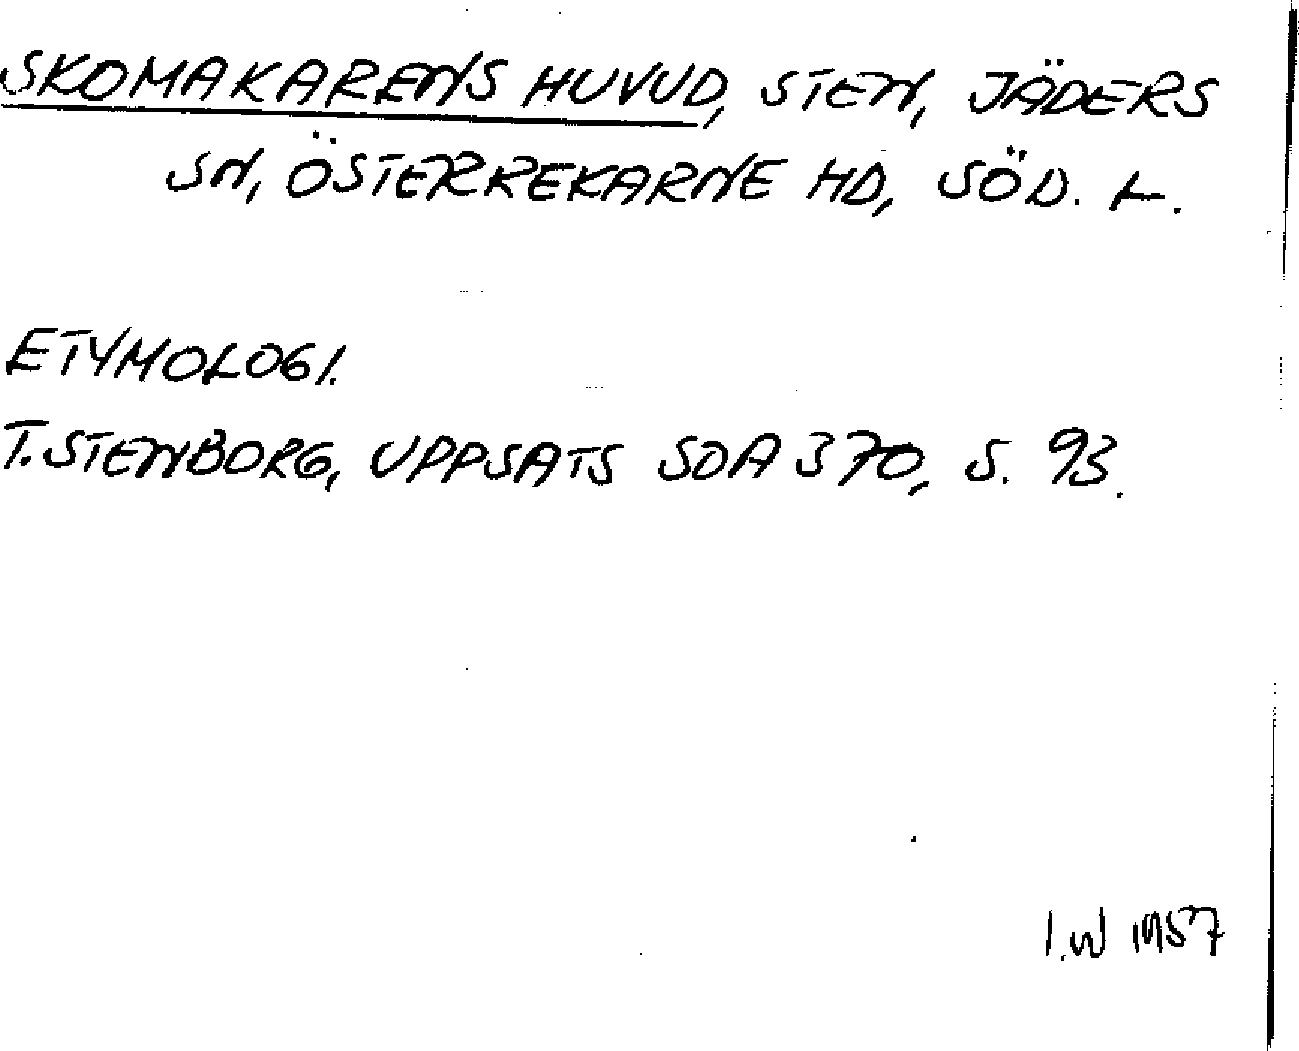 SKOMAKARENS HUVUD, STEN, JÄDERS
SN, ÖSTERREKARNE HD, SÖD. L.
ETYMOLOGI.
T. STENBORG, UPPSATS SOA 370, S. 93.
I.W 1957